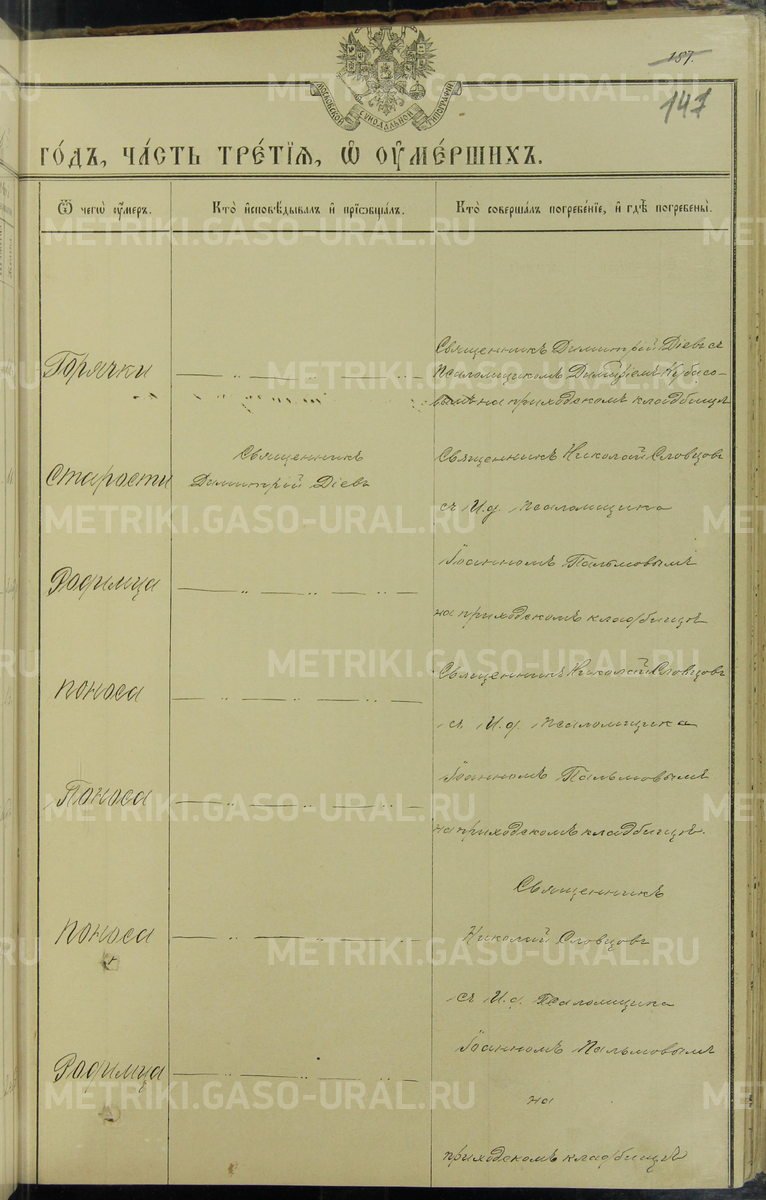 187.
147
МОСКОВСКОЙ СѴНОДАЛЬНОЙ ТИПОГРАФІИ
ГО́ДЪ, ЧА́СТЬ ТРЕ́ТІѦ, Ѡ҆ ОУ҆МЕ́РШИХЪ.
Ѿ чегѡ̀ оу҆́меръ.
Кто̀ и҆сповѣ́дывалъ и҆ прїѡбща́лъ.
Кто̀ соверша́лъ погребе́нїе, и҆ гдѣ̀ погребены̀.
Горячки
Священникъ Димитрій Діевъ съ
Псаломщикомъ Димитріемъ Кубасо-
вымъ на приходскомъ кладбищѣ
Старости
Священникъ
Димитрій Діевъ
Священникъ Николай Словцовъ
съ И.д. псаломщика
Іоанномъ Пальмовымъ
на приходскомъ кладбищѣ
Родимца
поноса
Священникъ Николай Словцовъ
съ И.д. псаломщика
Іоанномъ Пальмовымъ
на приходскомъ кладбищѣ.
Поноса
поноса
Священникъ
Николай Словцовъ
съ И.д. Псаломщика
Іоанномъ Пальмовымъ
на
приходскомъ кладбищѣ
Родимца
METRIKI.GASO-URAL.RU